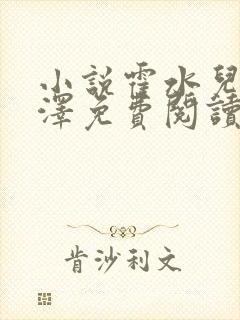 小說霍水兒
澤免費閱讀
肯沙利文